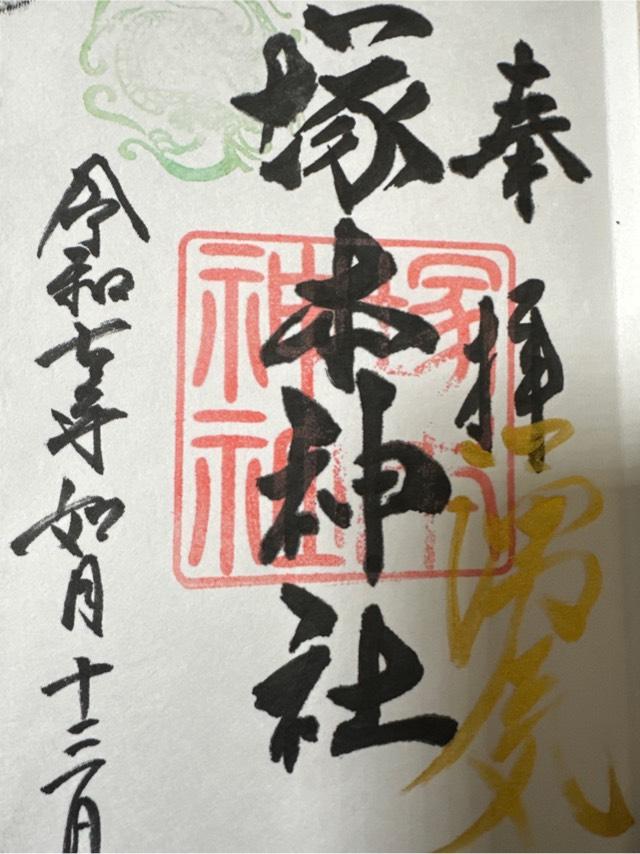 奉拝
塚本神社
塚本神社
令和七年如月十二日